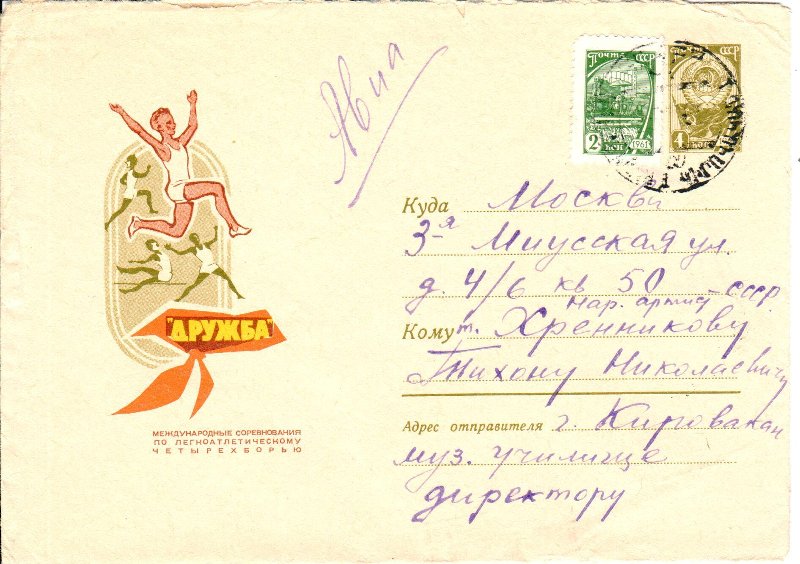 Авиа
Почта СССР
2 коп 1961
Почта СССР
4 коп
Куда Москва
3-я Миусская ул.
д. 4/6 кв 50
Нар. артист СССР
Кому т. Хренникову
Тихону Николаевичу
Адрес отправителя г. Кировакан
муз. училище
директору
"ДРУЖБА"
МЕЖДУНАРОДНЫЕ СОРЕВНОВАНИЯ
ПО ЛЕГКОАТЛЕТИЧЕСКОМУ
ЧЕТЫРЕХБОРЬЮ